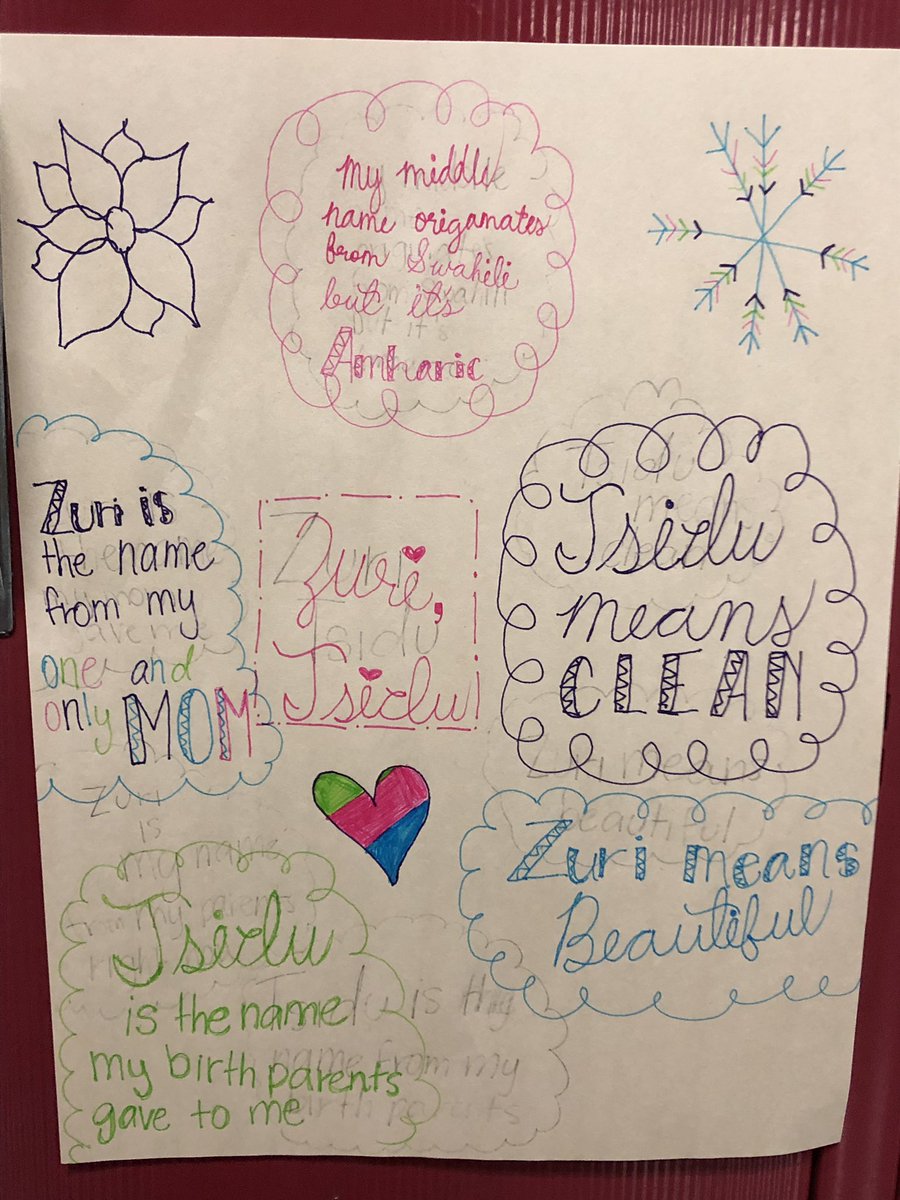 my middle
name origamates
from Swahili
but it's
Amharic
Zuri is
the name
from my
one and
only MOM
Zuri,
Tsidu
Tsidu
means
CLEAN
Zuri means
Beautiful
Tsidu
is the name
my birth parents
gave to me